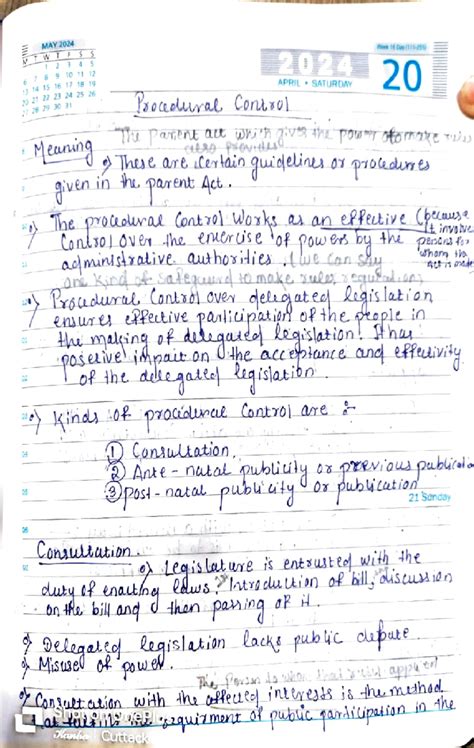 MAY 2024
M T W T F S S
1 2 3 4 5
6 7 8 9 10 11 12
13 14 15 16 17 18 19
20 21 22 23 24 25 26
27 28 29 30 31
2024
APRIL • SATURDAY
20
Procedural Control
The parent act which gives the power to make rules
also provides
Meaning
These are certain guidelines or procedures
given in the parent Act.
The procedural Control works as an effective (because
Control over the exercise of powers by the
it involve
persons for
whom the
Act is made
administrative authorities. (we can say
one kind of safeguard to make rules, regulations
Procedural Control over delegated legislation
ensures effective participation of the people in
the making of delegated legislation. It has
posetive impait on the acceptance and effectivity
of the delegated legislation
Kinds of procedural Control are :-
1 Consultation,
2 Ante-natal publicity or previous publication
3 post-natal publicity or publication
21 Sunday
Consultation.
Legislature is entrusted with the
duty of enacting laws. Introduction of bill, discussion
on the bill and then passing of it.
Delegated legislation lacks public depute.
Misuse of power.
The Person to whom that applied
Consultation with the affected interests is the method
requirment of public participation in the
Cuttack